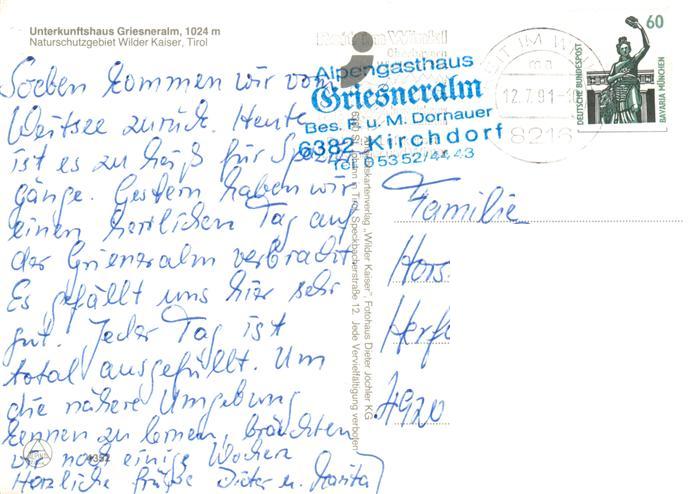 Unterkunftshaus Griesneralm, 1024 m
Naturschutzgebiet Wilder Kaiser, Tirol
Soeben kommen wir vom
Weitsee zurück. Heute
ist es zu heiß für Spazier-
gänge. Gestern haben wir
einen herrlichen Tag auf
der Grienzralm verbracht
Es gefällt uns hier sehr
gut. Jeder Tag ist
total ausgefüllt. Um
die nähere Umgebung
kennen zu lernen, bräuchten
wir noch einige Wochen
Herzliche Grüße Dieter u. Marita
4352
Reit im Winkl
Alpengasthaus
Griesneralm
Bes. F. u. M. Dornauer
6382 Kirchdorf
Tel. 0 53 52/44 43
REIT IM WINKL
12.7.91
8216
60
DEUTSCHE BUNDESPOST
BAVARIA MÜNCHEN
Kartenverlag „Wilder Kaiser", Fotohaus Dieter Jöchler KG
St. Johann in Tirol, Speckbacherstraße 12. Jede Vervielfältigung verboten
Familie
Hors
Herf
4920